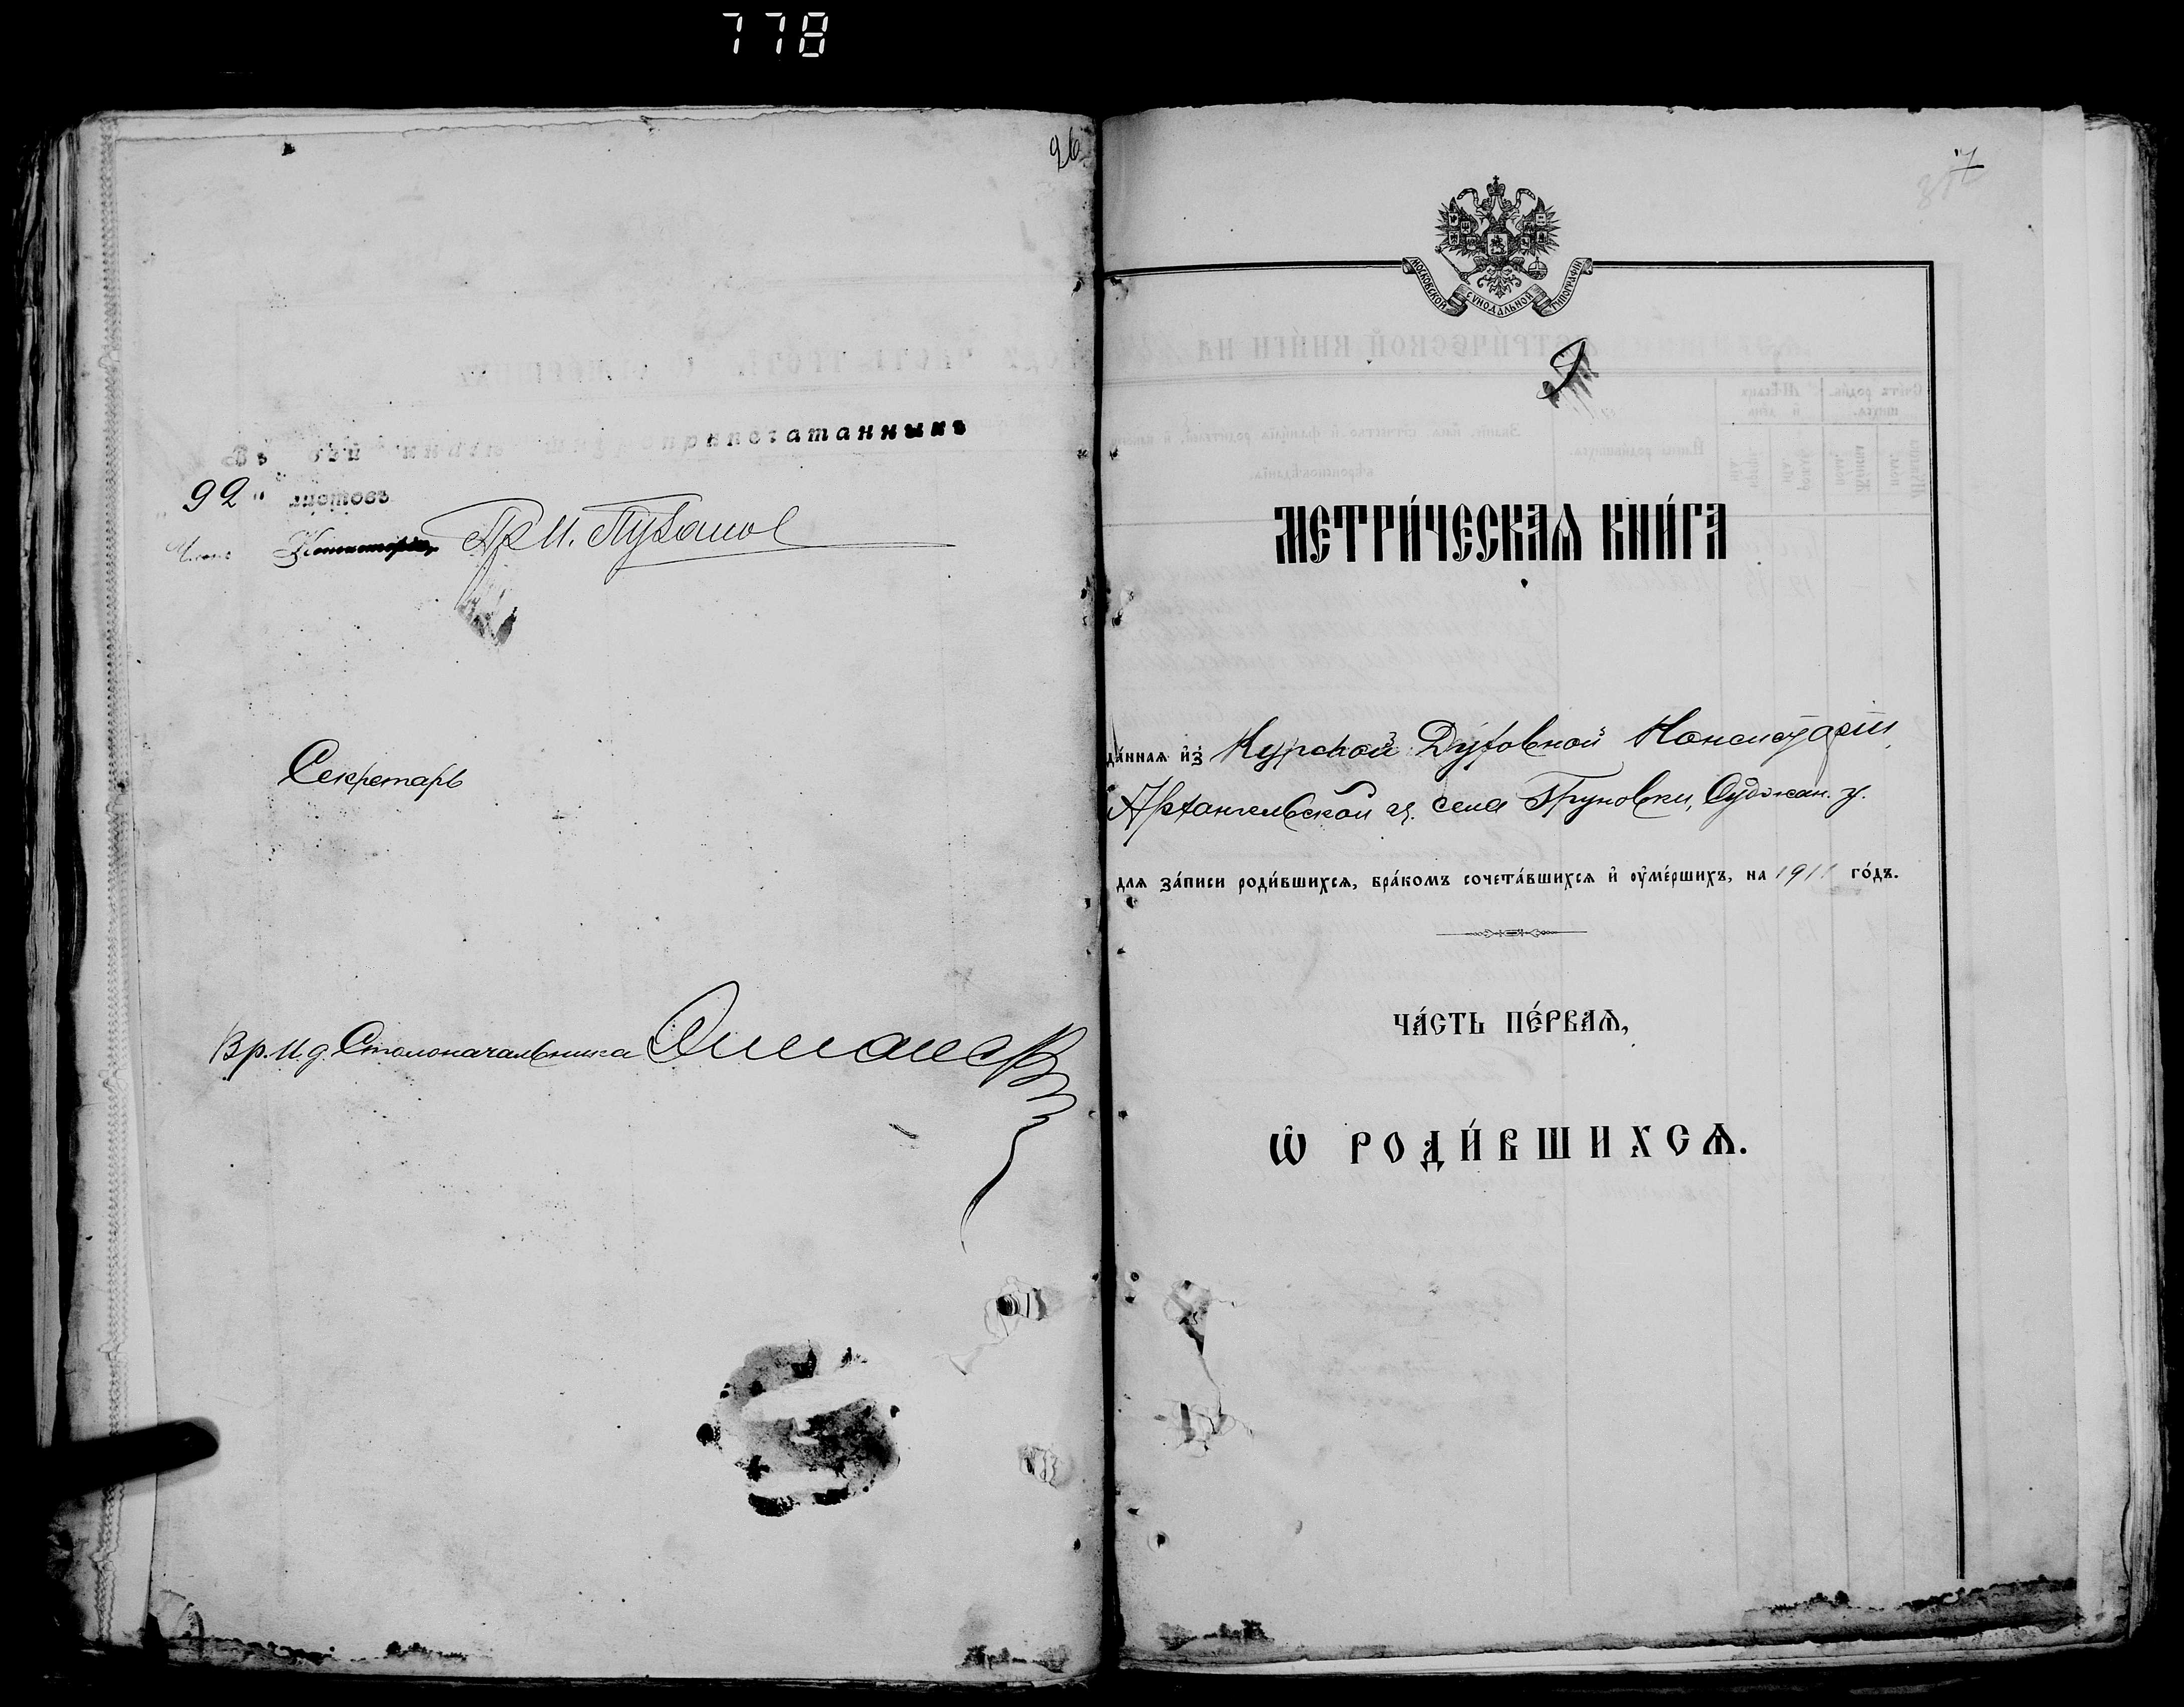 778
26
Въ сей книгѣ шнуроприпечатанныхъ
92 листовъ
Членъ Консисторіи, Пр. И. Пузанов
Секретарь
Вр. И. д. Столоначальника
7
МОСКОВСКОЙ СѴНОДАЛЬНОЙ ТИПОГРАФІИ
МЕТРИ́ЧЕСКАѦ КНИ́ГА
да́ннаѧ и҆з̾ Курской Духовной Консисторіи
Архангельской ц. села Груновки, Суджан. у.
длѧ за́писи роди́вшихсѧ, бра́комъ сочета́вшихсѧ и҆ оу҆ме́ршихъ, на 1911 го́дъ.
ЧА́СТЬ ПЕ́РВАѦ,
Ѡ҆ РОДИ́ВШИХСѦ.